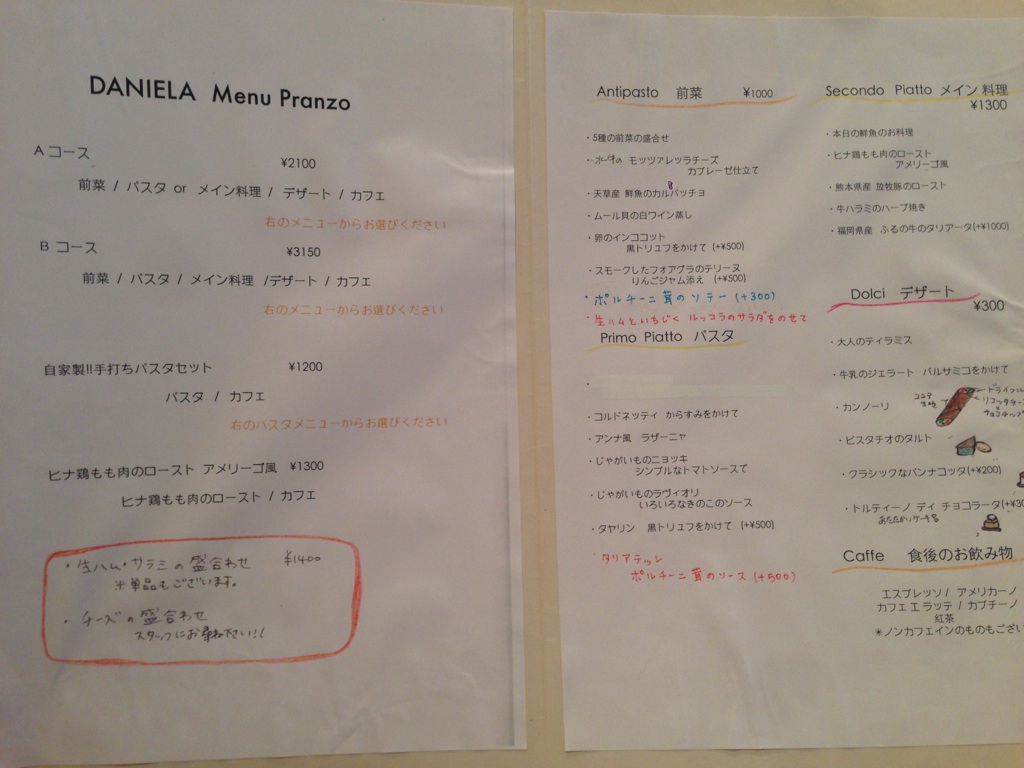 DANIELA Menu Pranzo
A コース
¥2100
前菜 / パスタ or メイン料理 / デザート / カフェ
右のメニューからお選びください
B コース
¥3150
前菜 / パスタ / メイン料理 /デザート / カフェ
右のメニューからお選びください
自家製!!手打ちパスタセット ¥1200
パスタ / カフェ
右のパスタメニューからお選びください
ヒナ鶏もも肉のロースト アメリーゴ風 ¥1300
ヒナ鶏もも肉のロースト / カフェ
・生ハム・サラミの盛合わせ ¥1400
※単品もございます。
・チーズの盛合わせ
スタッフにお尋ね下さい!!
Antipasto 前菜 ¥1000
・5種の前菜の盛合せ
・水牛の モッツァレッラチーズ
カプレーゼ仕立て
・天草産 鮮魚のカルパッチョ
・ムール貝の白ワイン蒸し
・卵のインココット
黒トリュフをかけて (+¥500)
・スモークしたフォアグラのテリーヌ
りんごジャム添え (+¥500)
・ポルチーニ茸のソテー (+300)
・生ハムといちじく ルッコラのサラダをのせて
Primo Piatto パスタ
・コルドネッティ からすみをかけて
・アンナ風 ラザーニャ
・じゃがいものニョッキ
シンプルなトマトソースで
・じゃがいものラヴィオリ
いろいろなきのこのソース
・タヤリン 黒トリュフをかけて (+¥500)
・タリアテッレ
ポルチーニ茸のソース (+500)
Secondo Piatto メイン料理
¥1300
・本日の鮮魚のお料理
・ヒナ鶏もも肉のロースト
アメリーゴ風
・熊本県産 放牧豚のロースト
・牛ハラミのハーブ焼き
・福岡県産 ふるの牛のタリアータ(+¥1000)
Dolci デザート
¥300
・大人のティラミス
・牛乳のジェラート バルサミコをかけて
・カンノーリ
ココア
生地
ドライフル
リコッタチーズ
と
チョコチップ
・ピスタチオのタルト
・クラシックなパンナコッタ(+¥200)
・トルティーノ ディ チョコラータ(+¥30
あたたかいケーキ
Caffe 食後のお飲み物
エスプレッソ / アメリカーノ
カフェ エ ラッテ / カプチーノ
紅茶
＊ノンカフェインのものもござい